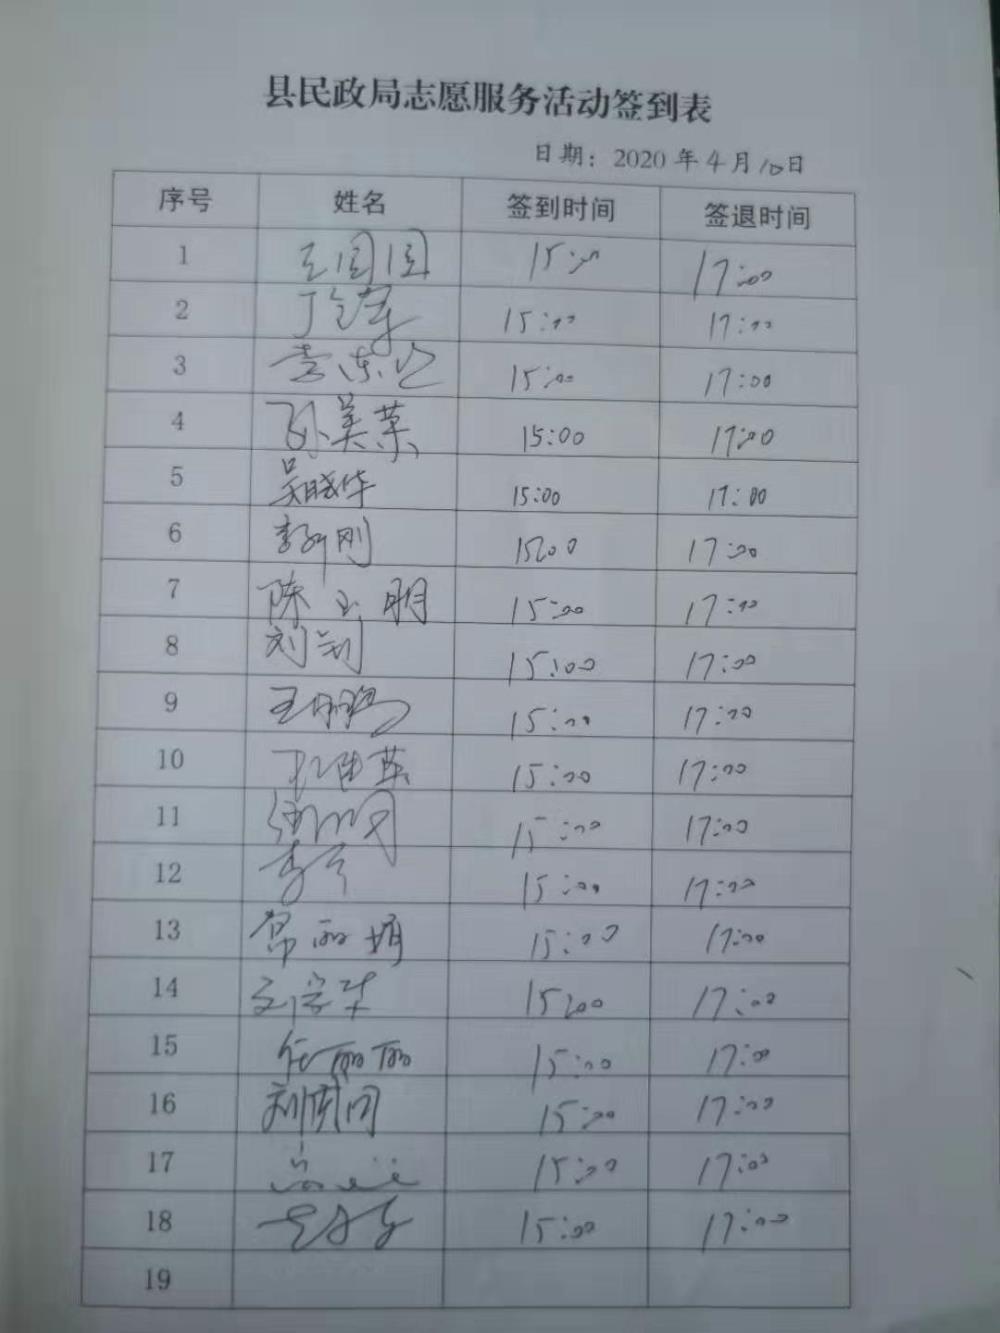 县民政局志愿服务活动签到表
日期：2020年4月10日
序号 姓名 签到时间 签退时间
1 王圆圆 15:00 17:00
2 15:00 17:00
3 15:00 17:00
4 孙美荣 15:00 17:00
5 吴晓华 15:00 17:00
6 刚 15:00 17:00
7 陈玉明 15:00 17:00
8 刘 15:00 17:00
9 王 15:00 17:00
10 英 15:00 17:00
11 15:00 17:00
12 李 15:00 17:00
13 丽娟 15:00 17:00
14 15:00 17:00
15 任丽丽 15:00 17:00
16 刘 15:00 17:00
17 15:00 17:00
18 15:00 17:00
19